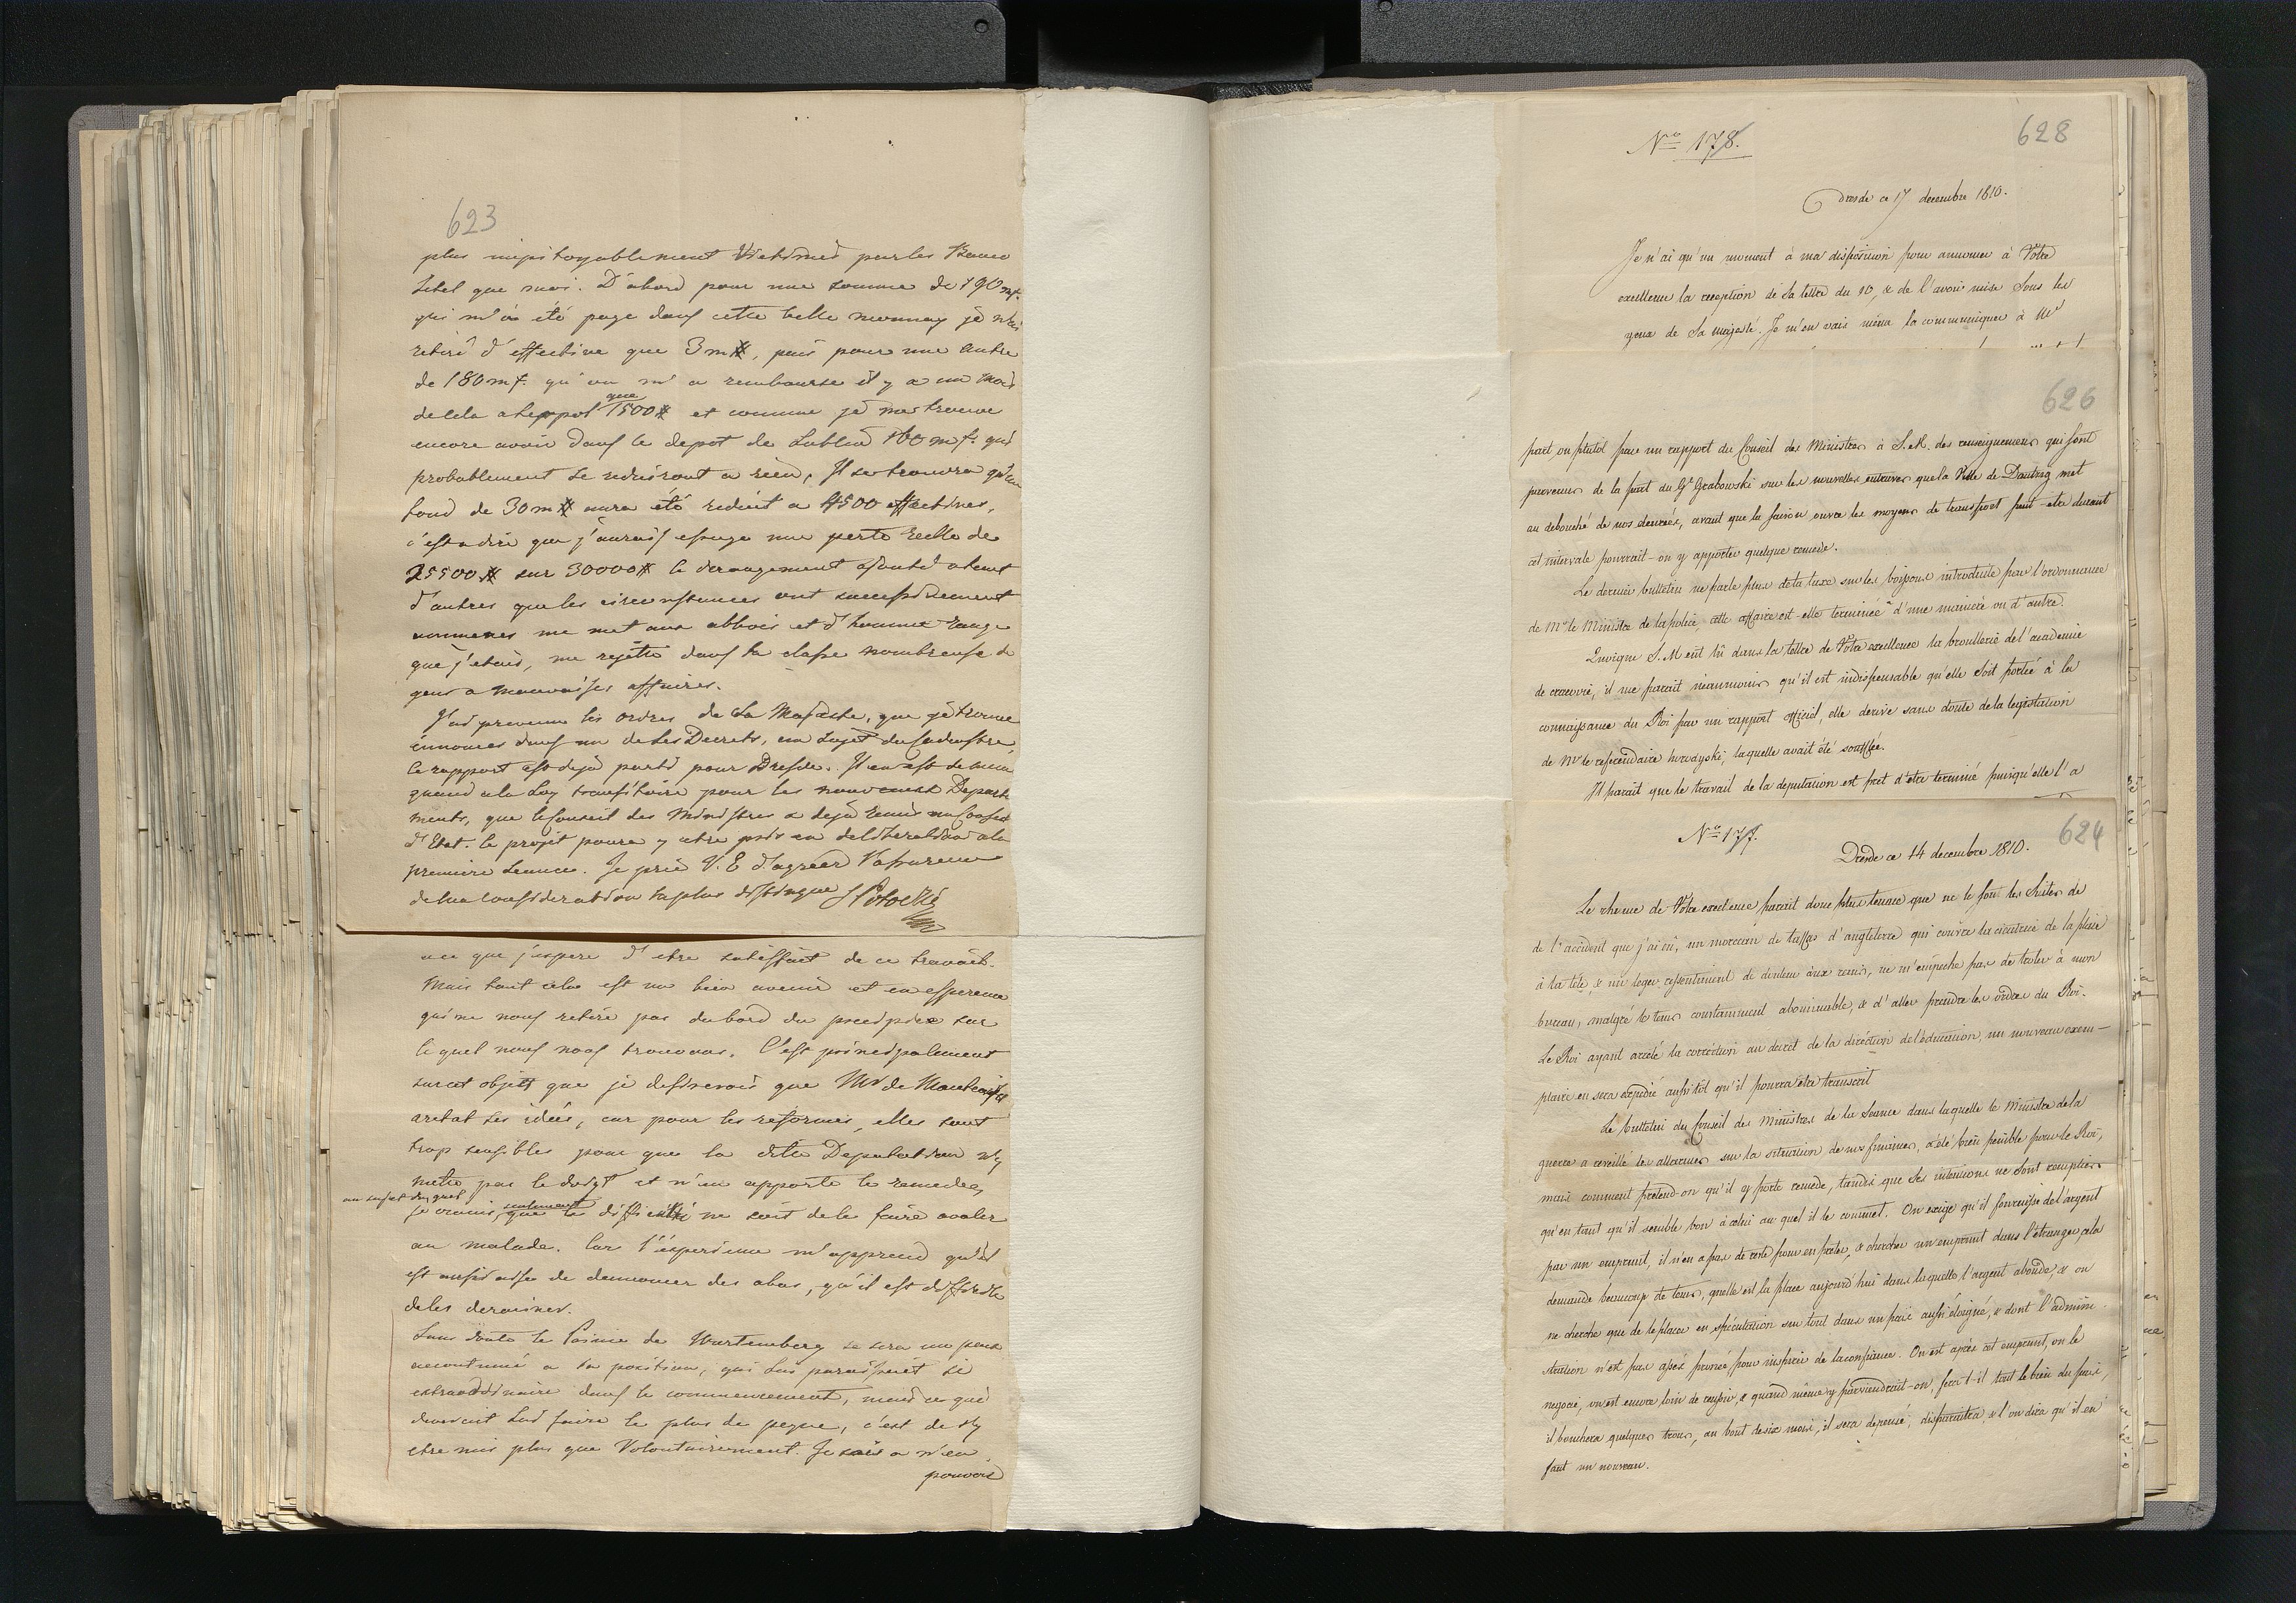 623
plus impitoyablement Victimés par les
que moi. D'abord pour une somme de 190 mf.
qui m'a été paye dans cette belle monnay je n'ai
retiré d'effective que 3m#, puis pour une autre
de 180 mf. qu'on m'a remboursé il y a un mois
de cela que 1500# et comme je me trouve
encore avoir dans le depot de Lublin 160 mf. qui
probablement se reduiront a rien, Il se trouvera qu'un
fond de 30 m# aura été reduit a 4500 effectives,
c'est a dire que j'aurais essuye une perte reelle de
25500# sur 30000# le derangement ajouté a tant
d'autres que les circonstances ont successivement
amenees me met aux abbois et d'homme range
que j'etais, me rejette dans la classe nombreuse de
gens a mauvaises affaires.
J'ai prevenu les ordres de Sa Majeste, que je trouve
énnoncés dans un de ses Decrets, au sujet du Cadastre,
le rapport est deja parti pour Dresde. Il en est de meme
quand a la Loy transitoire pour les nouveaux Departe
ments, que le Conseil des Ministres a deja remis au Conseil
d'Etat. le projet poura y etre pris en deliberation a la
premiere seance. Je prie V. E d'agréer l'assurence
de ma consideration la plus distingue S Potocki
a ce que j'espere d'etre satisfait de ce travail.
Mais tout cela est un bien avenir et en esperence
qui ne nous retire pas du bord du precipice sur
lequel nous nous trouvons. C'est principalement
sur cet objet que je desirerois que Mr de
aretat ses idées, car pour les reformes, elles sont
trop sensibles pour que la dite Deputation n'y
mette pas le doigt et n'en apporte les remedes,
au sujet duquel
je crains seulement, que la difficulté ne soit de le faire avaler
au malade. Car l'experience m'apprend qu'il
est aussi aisé de dennoncer des abus, qu'il est difficile
de les deraciner.
Sans doute le Prince de Wurtemberg se sera un peux
accoutumé a sa position, qui lui paraissoit si
extraordinaire dans le commencement, mais ce qui
devroit lui faire le plus de peyne, c'est de s'y
etre mis plus que Volontairement. Je sais a n'en
pouvoir
No 178.
628
Dresde ce 17 decembre 1810.
Je n'ai qu'un moment à ma disposition pour annoncer à Votre
excellence la reception de sa lettre du 10, & de l'avoir mise sous les
yeux de Sa Majesté. Je m'en vais même la communiquer à Mr
626
part ou plutot par un rapport du Conseil des Ministres à S. M. des renseignemens qui sont
parvenus de la part du Gl Grabowski sur les nouvelles entraves que la Ville de Dantzig met
au debouché de nos denrées, avant que la saison ouvre les moyens de transport peut-etre durant
cet intervale pourrait-on y apporter quelque remede.
Le dernier bulletin ne parle plus de la taxe sur les boissons introduite par l'ordonnance
de Mr le Ministre de la police, cette affaire est-elle terminée d'une manière ou d'autre.
Quoique S. M eût lû dans la lettre de Votre excellence la brouillerie de l'academie
de cracovie, il me parait néanmoins qu'il est indispensable qu'elle soit portée à la
connaissance du Roi par un rapport officiel, elle derive sans doute de la legislation
de Mr le referendaire laquelle avait été soufflée.
Il parait que le travail de la deputation est pret d'etre terminé puisqu'elle l'a
No 177.
624
Dresde ce 14 decembre 1810.
Le rhume de Votre excellence parait donc plus tenace que ne le sont les suites de
de l'accident que j'ai eu, un morceau de taffas d'angleterre qui couvre la cicatrice de la plaie
à la tête, & un leger ressentiment de douleur aux reins, ne m'empeche pas de trotter à mon
bureau, malgré le tems constamment abominable, & d'aller prendre les ordres du Roi.
Le Roi ayant arreté la correction au decret de la diréction de l'éducation, un nouveau exem-
plaire en sera expedié aussitôt qu'il pourra être transcrit
Le bulletin du Conseil des Ministres de la Seance dans laquelle le Ministre de la
guerre a reveillé les allarmes sur la situation de nos finances, a été bien penible pour le Roi,
mais comment pretend-on qu'il y porte remede, tandis que ses intentions ne sont remplies
qu'en tant qu'il semble bon à celui au quel il le commet. On exige qu'il fournisse de l'argent
par un emprunt, il n'en a pas de reste pour en preter, & chercher un emprunt dans l'étranger, cela
demande beaucoup de tems, quelle est la place aujourd'hui dans laquelle l'argent abonde, & on
ne cherche que de le placer en spéculation sur tout dans un païs aussi éloigné, & dont l'admini
stration n'est pas assés prônée pour inspirer de la confiance. On est après cet emprunt, on le
negocie, on est encore loin de reussir, & quand même y parviendrait-on, fera-t-il tout le bien du païs,
il bouchera quelques trous, au bout de six mois, il sera depensé, disparaitra, & l'on dira qu'il en
faut un nouveau.